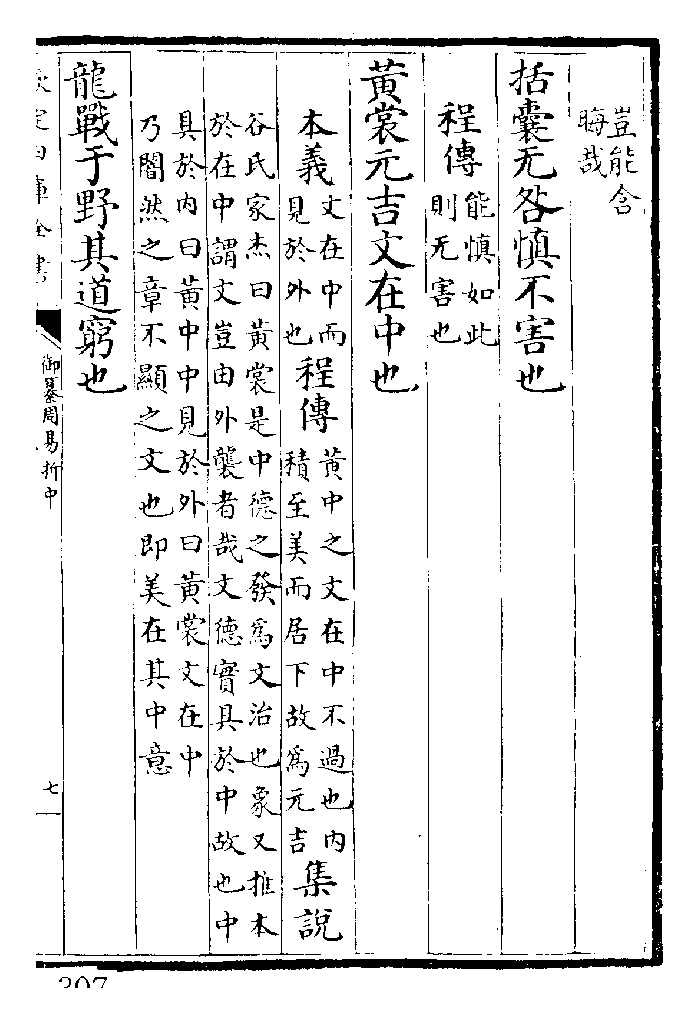 豈能含
晦哉
括囊无咎慎不害也
程傳
能慎如此
則无害也
黃裳元吉文在中也
本義
文在中而
見於外也
程傳
黃中之文在中不過也內
積至美而居下故為元吉
集說
谷氏家杰曰黃裳是中德之發為文治也象又推本
於在中謂文豈由外襲者哉文德實具於中故也中
具於內曰黃中中見於外曰黃裳文在中
乃闇然之章不顯之文也即美在其中意
龍戰于野其道窮也
欽定四庫全書
御纂周易折中
七
307